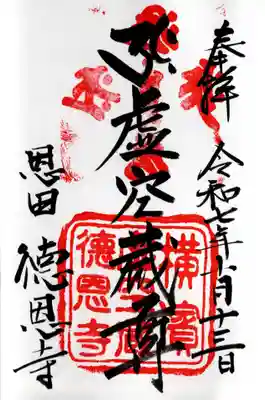 奉拝
令和七年十月十三日
虚空蔵尊
恩田 徳恩寺
横濱
徳恩寺